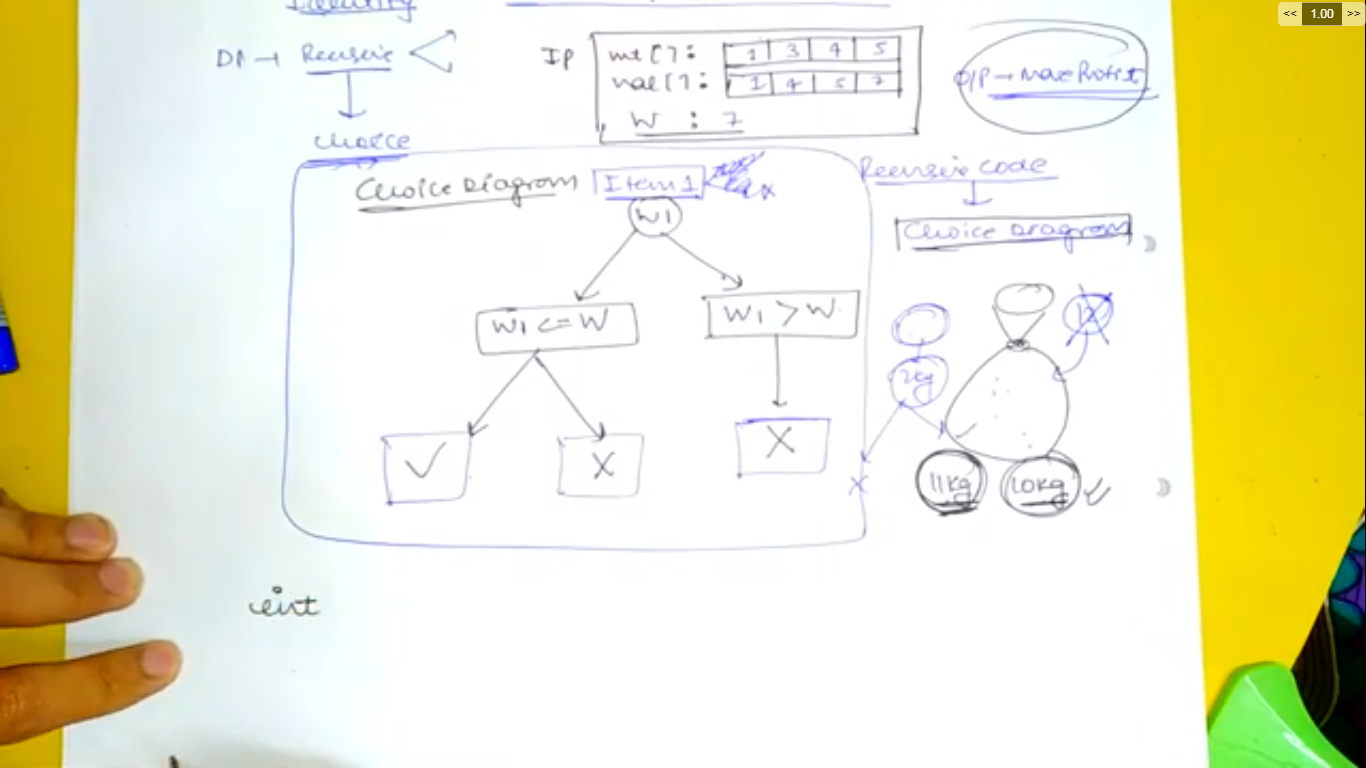 Identity
DP → Recursive
IP
wt[]: 1 3 4 5
val[]: 1 4 5 7
W : 7
O/P → Max Profit
choice
Choice Diagram Item 1
W1
W1 <= W
W1 > W
✓
X
X
Recursive code
Choice Diagram
2kg
X
11kg
10kg ✓
int
<< 1.00 >>